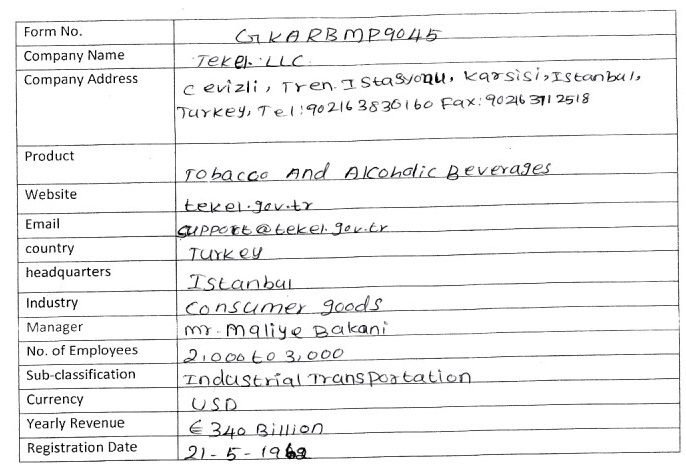 Form No. GKARBMP9045
Company Name Tekel. LLC
Company Address Cevizli, Tren. Istasyonu, Karsisi, Istanbul,
Turkey, Tel:902163830160 Fax:902163712518
Product Tobacco And Alcoholic Beverages
Website tekel.gov.tr
Email support@tekel.gov.tr
country Turkey
headquarters Istanbul
Industry Consumer goods
Manager Mr. Maliye Bakani
No. of Employees 2,000 to 3,000
Sub-classification Industrial Transportation
Currency USD
Yearly Revenue € 340 Billion
Registration Date 21-5-